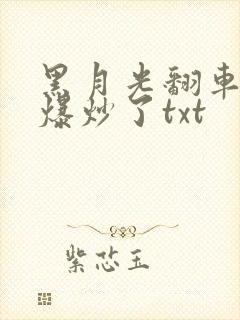 黑月光翻車
爆炒了txt
紫芯玉